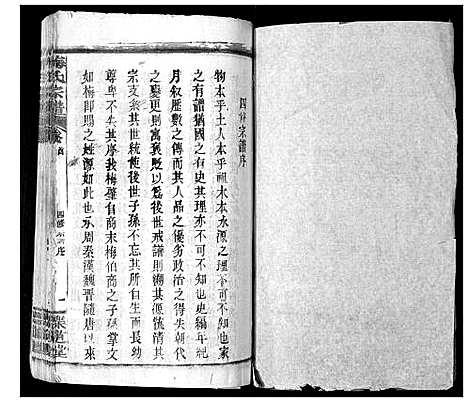 四修宗譜序
物本乎土人本乎祖木本水源之理不可不知也家
之有譜猶國之有史其理亦不可不知也史編年紀
月叙歷數之得其人品之優劣政治之得失朝代
之變更則寓褒貶以爲後世戒譜則溯其源流清其
宗支系其世統使後世子孫不忘其所自生而長幼
尊卑不失其序我梅肇自商末梅伯商之子孫掌文
如梅即賜之姓源如此也承周秦漢魏晉隨唐以來
梅氏宗譜
四修宗譜序